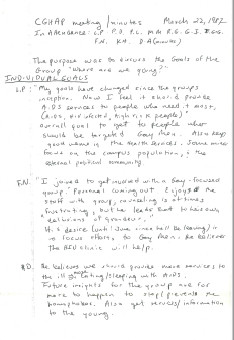 CGHAP meeting/minutes March 22, 1992
In Attendance: L.P., P.D, P.C, M.M E.G. G.I. E.G.G.
F.N. K.H. D.A (minutes)
The purpose was to discuss the Goals of the
Group "where are we going?"
INDIVIDUAL GOALS
L.P: "My goals have changed since the groups
inception. Now I feel it should provide
AIDS services to people who need it most,
(AIDS, HIV infected, high risk people)
overall goal to get to people who
should be targeted Gay Men. Also keep
good in the Health Services. Some more
focus on the campus population, the
external political community.
F.N. "I joined to get involved with a Gay-focused
group." Personal coming out. Enjoys the
stuff with group, counseling is at times
frustrating, but he leads staff to have own
definitions of
His desire (until June since he'll be leaving) is
to focus efforts to Gay Men. He believes
the clinic will help.
P.D. He believes we should provide more services to
the ill most /sleeping with AIDS.
Future insights for the group are for
more to happen to stop/prevent the
homophobes. Also get services/information
to the young.